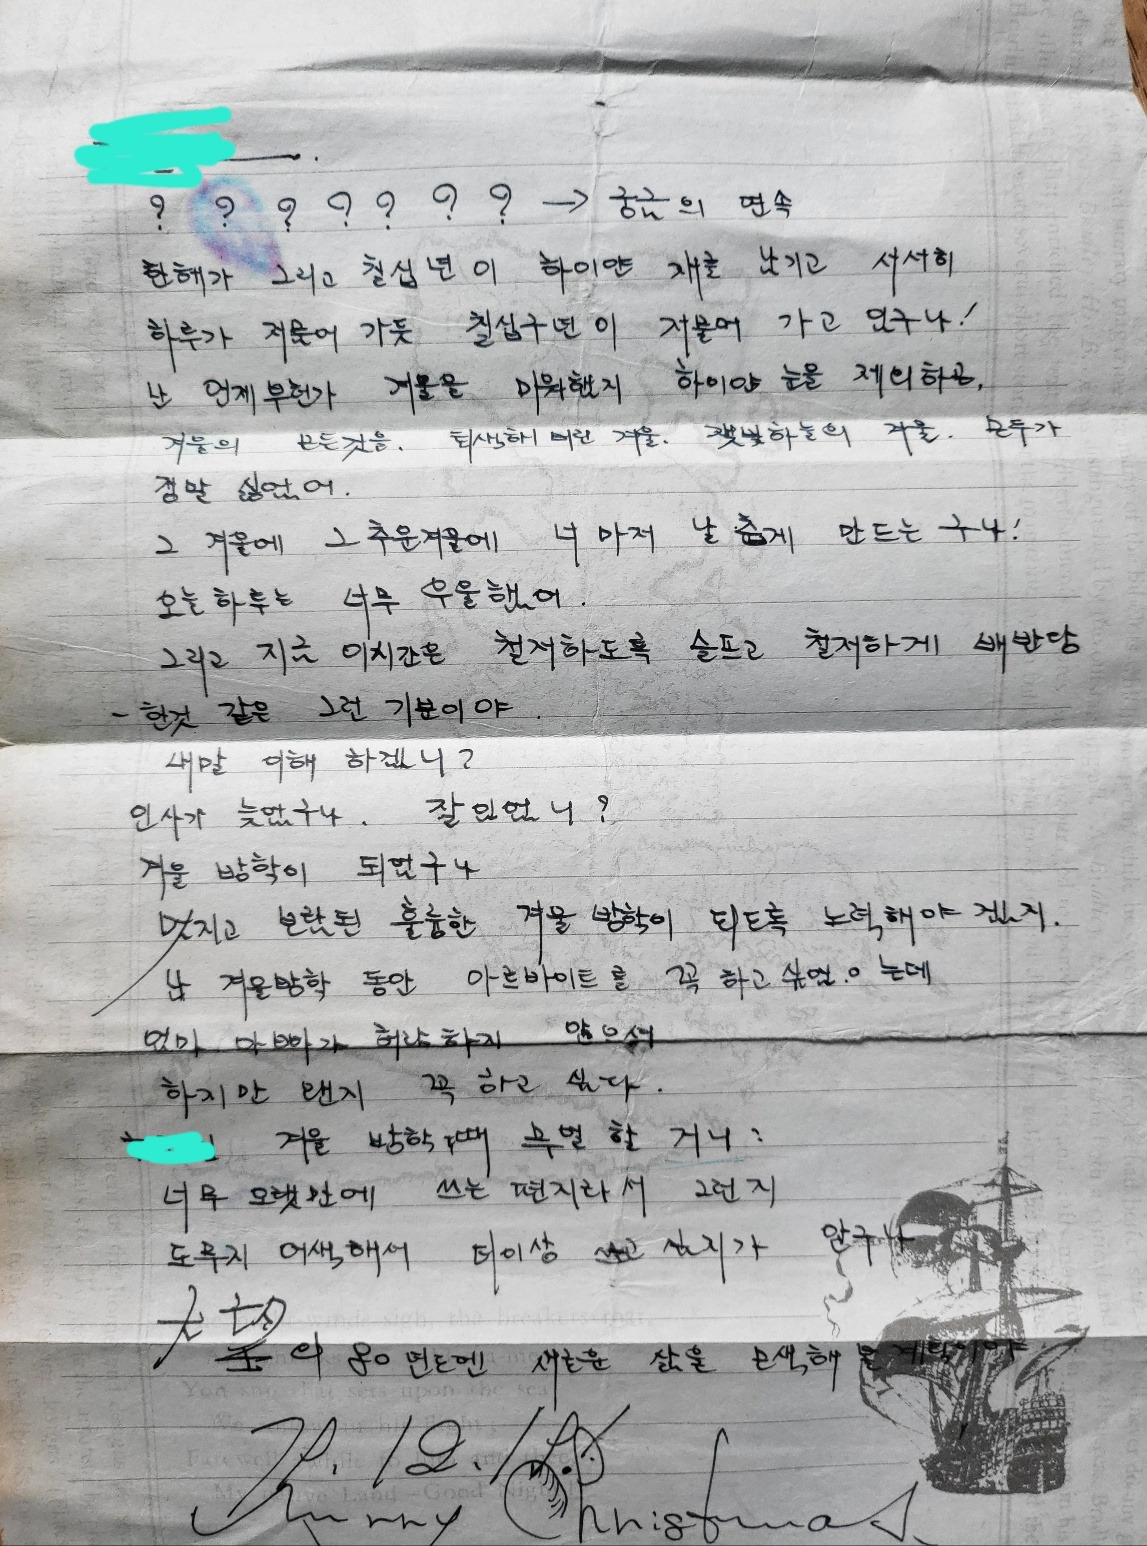 ? ? ? ? ? ? ? → 궁금의 연속
한해가 그리고 칠십년이 하이얀 재를 남기고 서서히
하루가 저물어 가듯 칠십구년이 저물어 가고 있구나!
난 언제부턴가 겨울을 미워했지 하이얀 눈을 제외하곤,
겨울의 모든것을. 퇴색해 버린 겨울. 잿빛하늘의 겨울. 모두가
정말 싫었어.
그 겨울에 그 추운겨울에 너 마저 날 춥게 만드는 구나!
오늘 하루는 너무 우울했어.
그리고 지금 이시간은 철저하도록 슬프고 철저하게 배반당
- 한것 같은 그런 기분이야.
내말 이해 하겠니?
인사가 늦었구나. 잘 있었니?
겨울 방학이 되었구나
멋지고 보람된 훌륭한 겨울 방학이 되도록 노력해야 겠지.
난 겨울방학 동안 아르바이트를 꼭 하고 싶었.는데
엄마 아빠가 허락하지 않으셔
하지만 왠지 꼭 하고 싶다.
겨울 방학때 무얼 할 거니:
너무 오랫만에 쓰는 편지라서 그런지
도무지 어색해서 더이상 쓰고 싶지가 않구나
의 80년도엔 새로운 삶을 모색해 볼 계획이야
79. 12. 18
Merry Christmas.